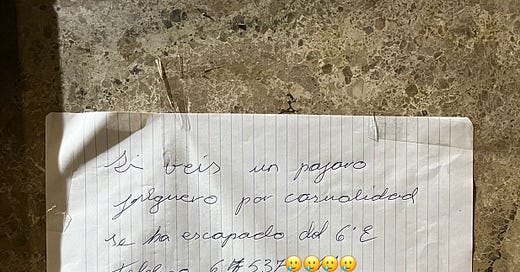 Si veis un pajaro
jilguero por casualidad
se ha escapado del 6º E